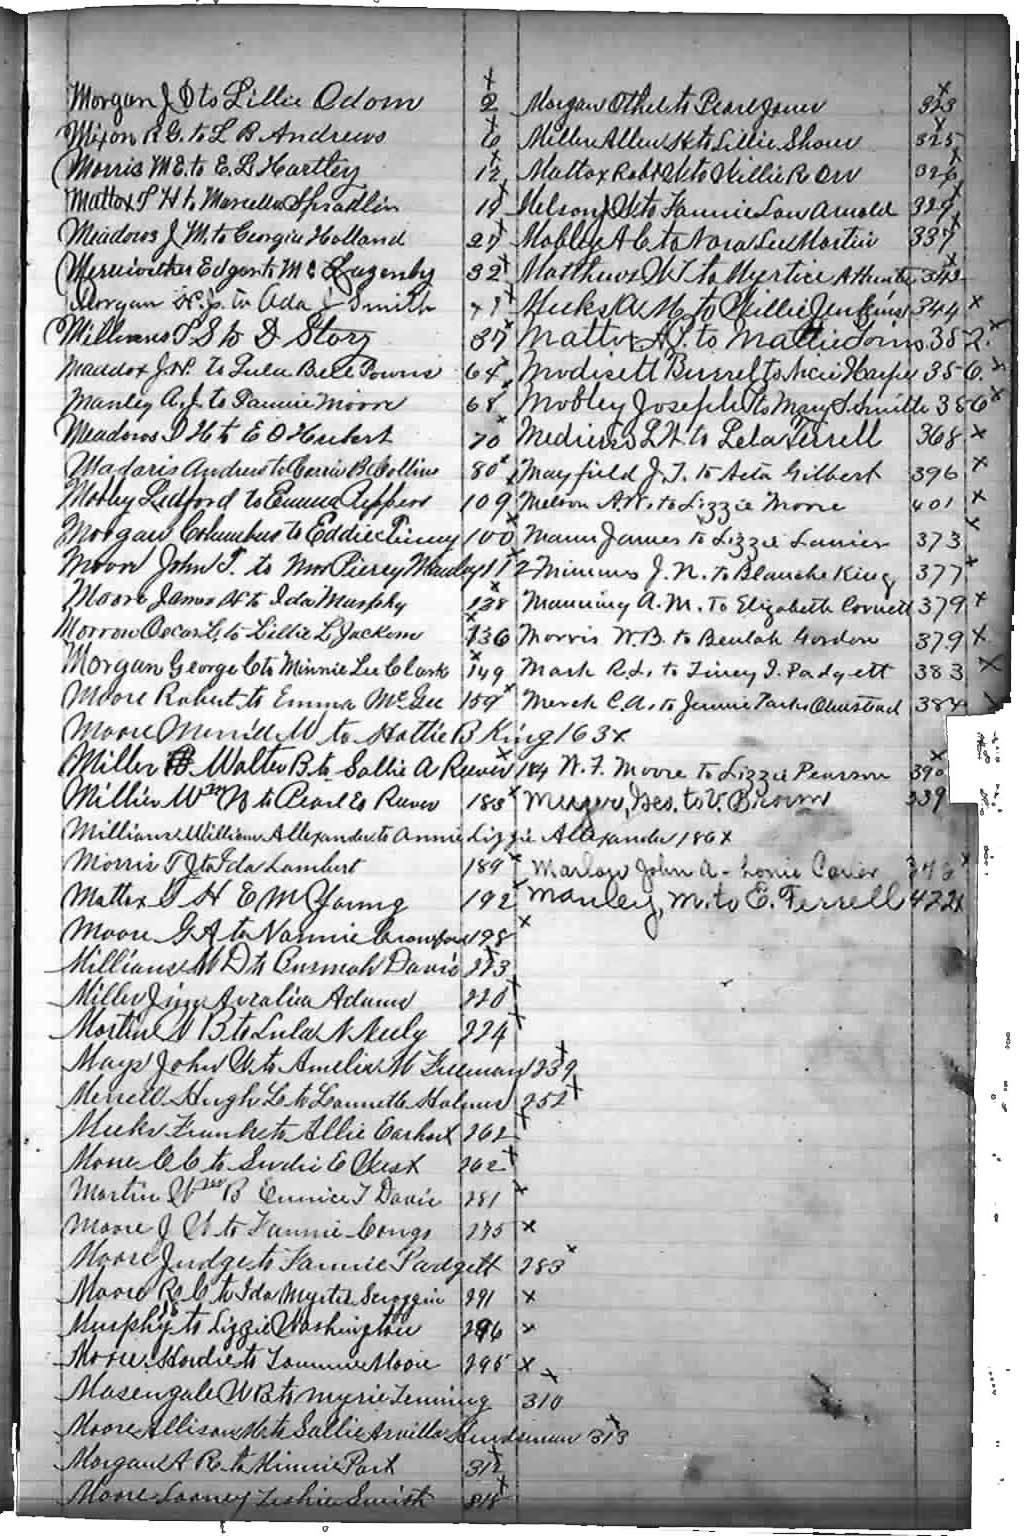 Morgan J D to Lillie Odom 2
Mixon R G. to L B Andrews 6
Morris M E. to E. L Hartley 12
Mattox T H to Marcella Spradlin 19
Meadows J M. to Georgia Holland 27
Meriwether Edgar to Mc Lazenby 32
Morgan to Ada J Smith
Millians T S to D Story 37
Maddox J. W. to Lula Bell Powns 64
Manley A. J. to Fannie Moore 68
Meadows H to E O Hubert 70
Madaris Andrew to Carrie B Collins 80
Mobley Ledford to Emma Peppers 109
Morgan Columbus to Eddie Pinny 100
Moon John T. to Mrs Piercy Manley 112
Moore James H to Ida Murphy 128
Morrow Oscar L. to Lillie L. Jackson 136
Morgan George C to Minnie Lee Clark 149
Moore Robert to Emma McGee 159
Moore Merrid M to Hattie B King 163 x
Miller Walter B to Sallie A Reever 184
Millirs Wm to Pearl E Reever 183
Millians William Allexander to Annie Lizzie Allexander 186 x
Morris T J to Ida Lambert 189
Mattox T H E M Young 192
Moore G A to Nannie Crawford 198
Millians W D to Burmah Davis 213
Miller Jim Avralia Adams 220
Martin W B to Lula N Neely 224
Mays John W. to Amelia M Freeman 239
Merrell Hugh L to Lannette Holmes 252
Meeks Frank to Allie Earhart 262
Mone C C to Sudie E West 262
Martin Wm B Eunice T Davis 281
Moore J W to Fannie Congo 275 x
Moore Judge to Fannie Padgett 283
Moore R C to Ida Myrtis Scroggin 291 x
Murphy to Lizzie Washington 296 x
Moore to Tommie Moore 295 x
Masengale W B to Myrie Tenning 310
Moore Allison to Sallie Arvilla 313
Morgan A R. to Minnie Park 312
Moore Looney Smith 318
Morgan Othel to Pearl Jones 323
Miller Allen H to Lillie Shows 325
Mattox Robt W to Willie R Orr 326
Nelson J W to Fannie Lou Arnold 329
Mobley A C to Nora Lee Martin 337
Matthews W T to Myrtice A Hunter 343
Meeks A M to Willie Jenkins 344 x
Mattox A. P. to Mattie 352
Modisett Burrel to Harper 356
Mobley Joseph to Mary Smith 386 x
Medirris L H. to Lela Terrell 368 x
Mayfield J. T. to Acta Gilbert 396 x
Melson A. W. to Lizzie Moore 401 x
Mann James to Lizzie Lanier 373
Mimms J. N. to Blanche King 377
Manning A. M. To Elizabeth Cornett 379 x
Morris W. B. to Beulah Gordon 379 x
Mark R. L. to Tincy I. Padgett 383 x
Merck C. A. to Jennie Parks Olmstead 384
W. F. Moore to Lizzie Pearson 390
Meyer, Geo. to V. Brown 339
Marlow John A - Lonie Carver 376
Manley, M. to E. Ferrell 422 x